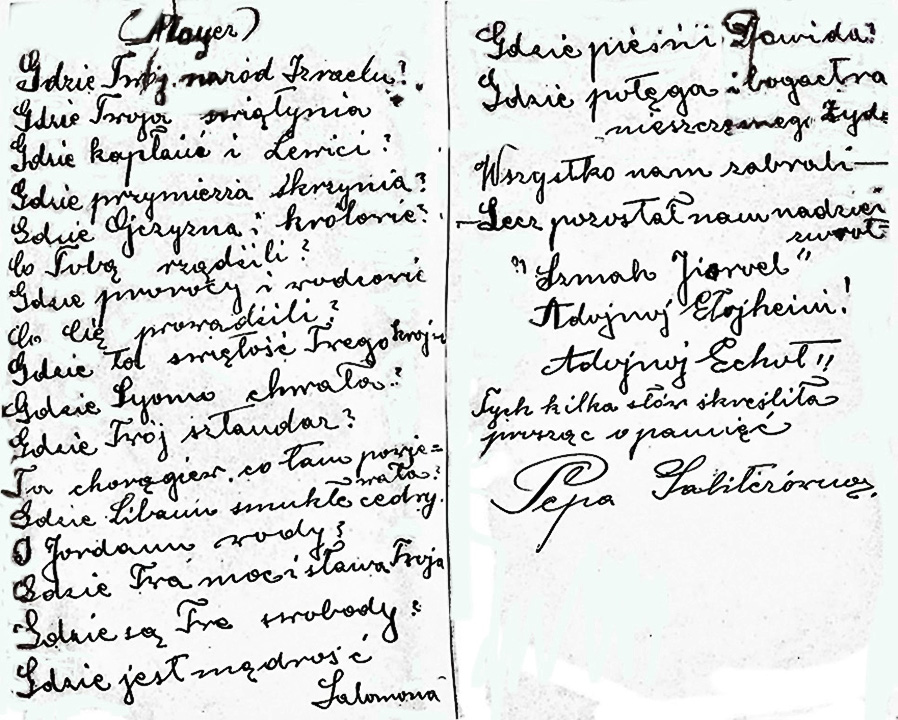 (Mayer)
Gdzie Twój naród Izraelu?
Gdzie Twoja świątynia
Gdzie kapłani i Lewici?
Gdzie przymierza skrzynia?
Gdzie Ojczyzna i królowie?
Co Tobą rządzili?
Gdzie prorocy i wodzowie
Co Cię prowadzili?
Gdzie ta świętość Twego kraju
Gdzie Syonu chwała?
Gdzie Twój sztandar?
Ta chorągiew co tam powie=
wała?
Gdzie Libanu smukłe cedry.
O Jordanu wody?
Gdzie Twa moc i sława Twoja
Gdzie są Twe swobody?
Gdzie jest mądrość
Salomona
Gdzie pieśni Dawida?
Gdzie potęga i bogactwa
nieszczęsnego Żyda
Wszystko nam zabrali—
—Lecz pozostał nam nadziei
zwrot
"Szmah Jisroel"
Adojnoj Elojheini!
Adojnoj Echot!!
Tych kilka słów skreśliła
prosząc o pamięć
Pepa